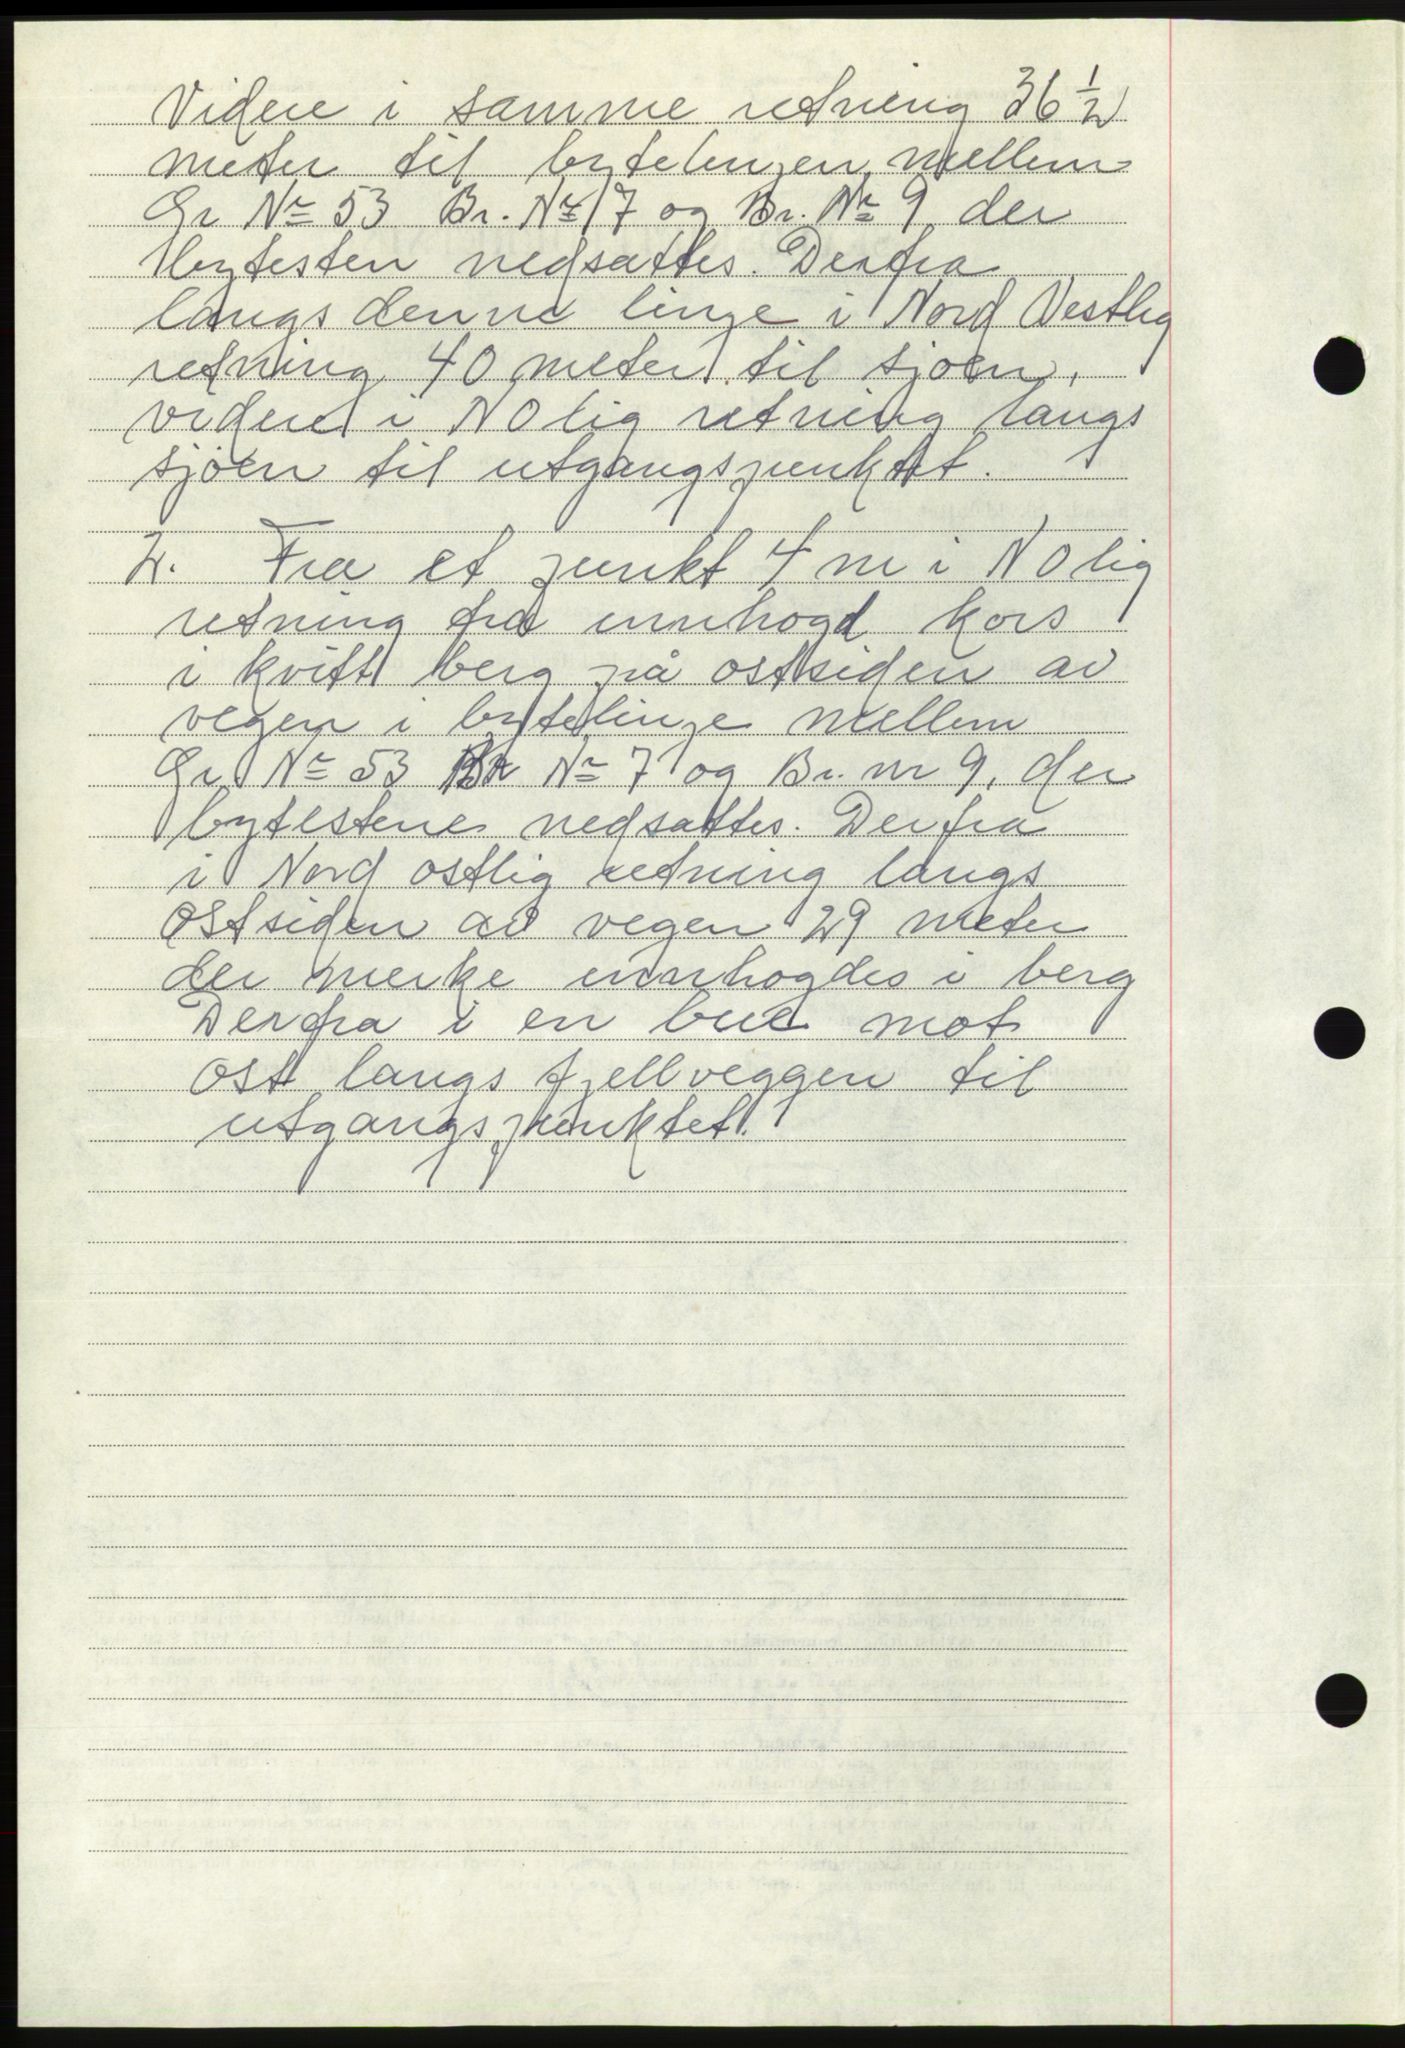 Videre i samme retning 36 ½
meter til bytelinjen mellem
Gr Nr 53 Br. Nr 7 og Br. Nr 9 der
bytesten nedsattes. Derfra
langs denne linje i Nord Vestlig
retning 40 meter til sjøen,
videre i NOlig retning langs
sjøen til utgangspunktet.
2. Fra et punkt 4 m i NOlig
retning fra innhogd kors
i kvitt berg på ostsiden av
vegen i bytelinje mellem
Gr. Nr 53 Br Nr 7 og Br. nr 9, der
bytestene nedsattes. Derfra
i Nord ostlig retning langs
Ostsiden av vegen 29 meter
der merke innhogdes i berg
Derfra i en bue mot
ost langs fjellveggen til
utgangspunktet.